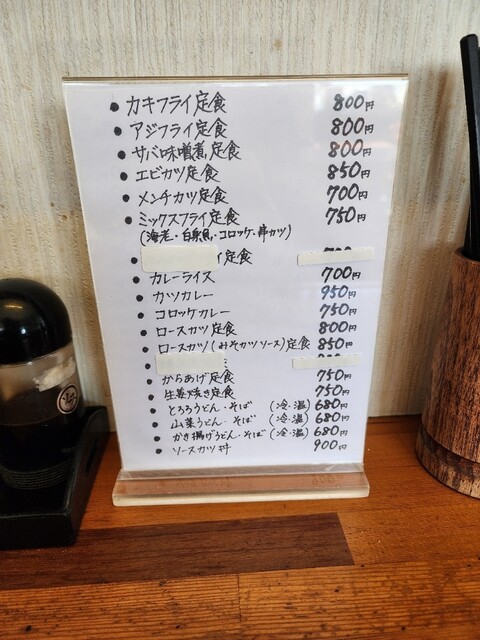 ● カキフライ定食 800円
● アジフライ定食 800円
● サバ味噌煮定食 800円
● エビカツ定食 850円
● メンチカツ定食 700円
● ミックスフライ定食 750円
(海老・白身魚・コロッケ・串カツ)
● イ定食
● カレーライス 700円
● カツカレー 950円
● コロッケカレー 750円
● ロースカツ定食 800円
● ロースカツ(みそカツソース)定食 850円
● からあげ定食 750円
● 生姜焼き定食 750円
● とろろうどん・そば (冷・温) 680円
● 山菜うどん・そば (冷・温) 680円
● かき揚げうどん・そば (冷・温) 680円
● ソースカツ丼 900円